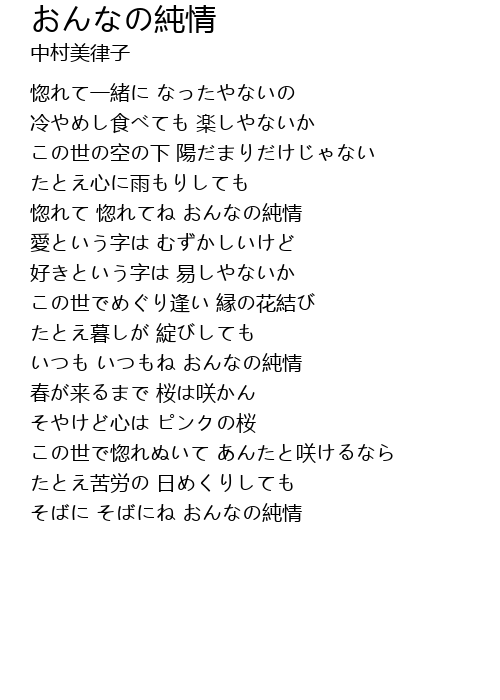 おんなの純情
中村美律子
惚れて一緒に なったやないの
冷やめし食べても 楽しやないか
この世の空の下 陽だまりだけじゃない
たとえ心に雨もりしても
惚れて 惚れてね おんなの純情
愛という字は むずかしいけど
好きという字は 易しやないか
この世でめぐり逢い 縁の花結び
たとえ暮しが 綻びしても
いつも いつもね おんなの純情
春が来るまで 桜は咲かん
そやけど心は ピンクの桜
この世で惚れぬいて あんたと咲けるなら
たとえ苦労の 日めくりしても
そばに そばにね おんなの純情